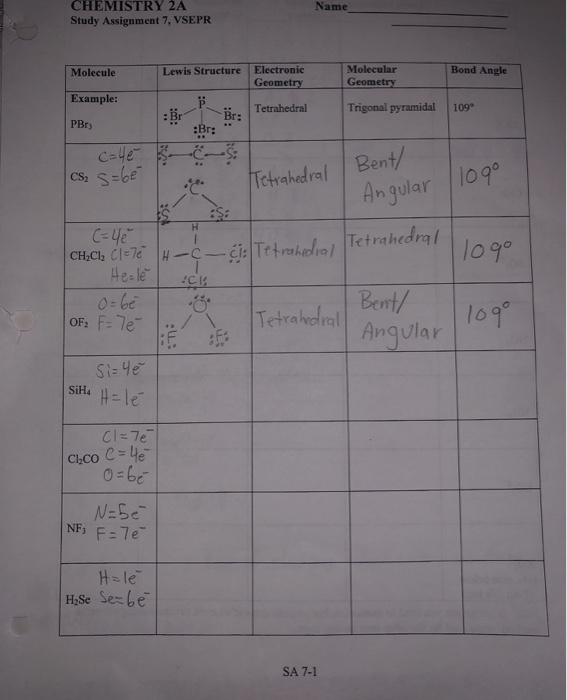 CHEMISTRY 2A Name
Study Assignment 7, VSEPR
Molecule Lewis Structure Electronic Geometry Molecular Geometry Bond Angle
Example:
PBr₃
P
:Br Br:
:Br:
Tetrahedral Trigonal pyramidal 109°
C=4e⁻
CS₂ S=6e⁻
S—C—S:
C
S :S:
Tetrahedral Bent/ Angular 109°
C=4e⁻
CH₂Cl₂ Cl=7e⁻
He=1e⁻
H
H—C—Cl:
:Cl:
Tetrahedral Tetrahedral 109°
O=6e⁻
OF₂ F=7e⁻
:O:
:F :F:
Tetrahedral Bent/ Angular 109°
Si=4e⁻
SiH₄ H=1e⁻
Cl=7e⁻
Cl₂CO C=4e⁻
O=6e⁻
N=5e⁻
NF₃ F=7e⁻
H=1e⁻
H₂Se Se=6e⁻
SA 7-1